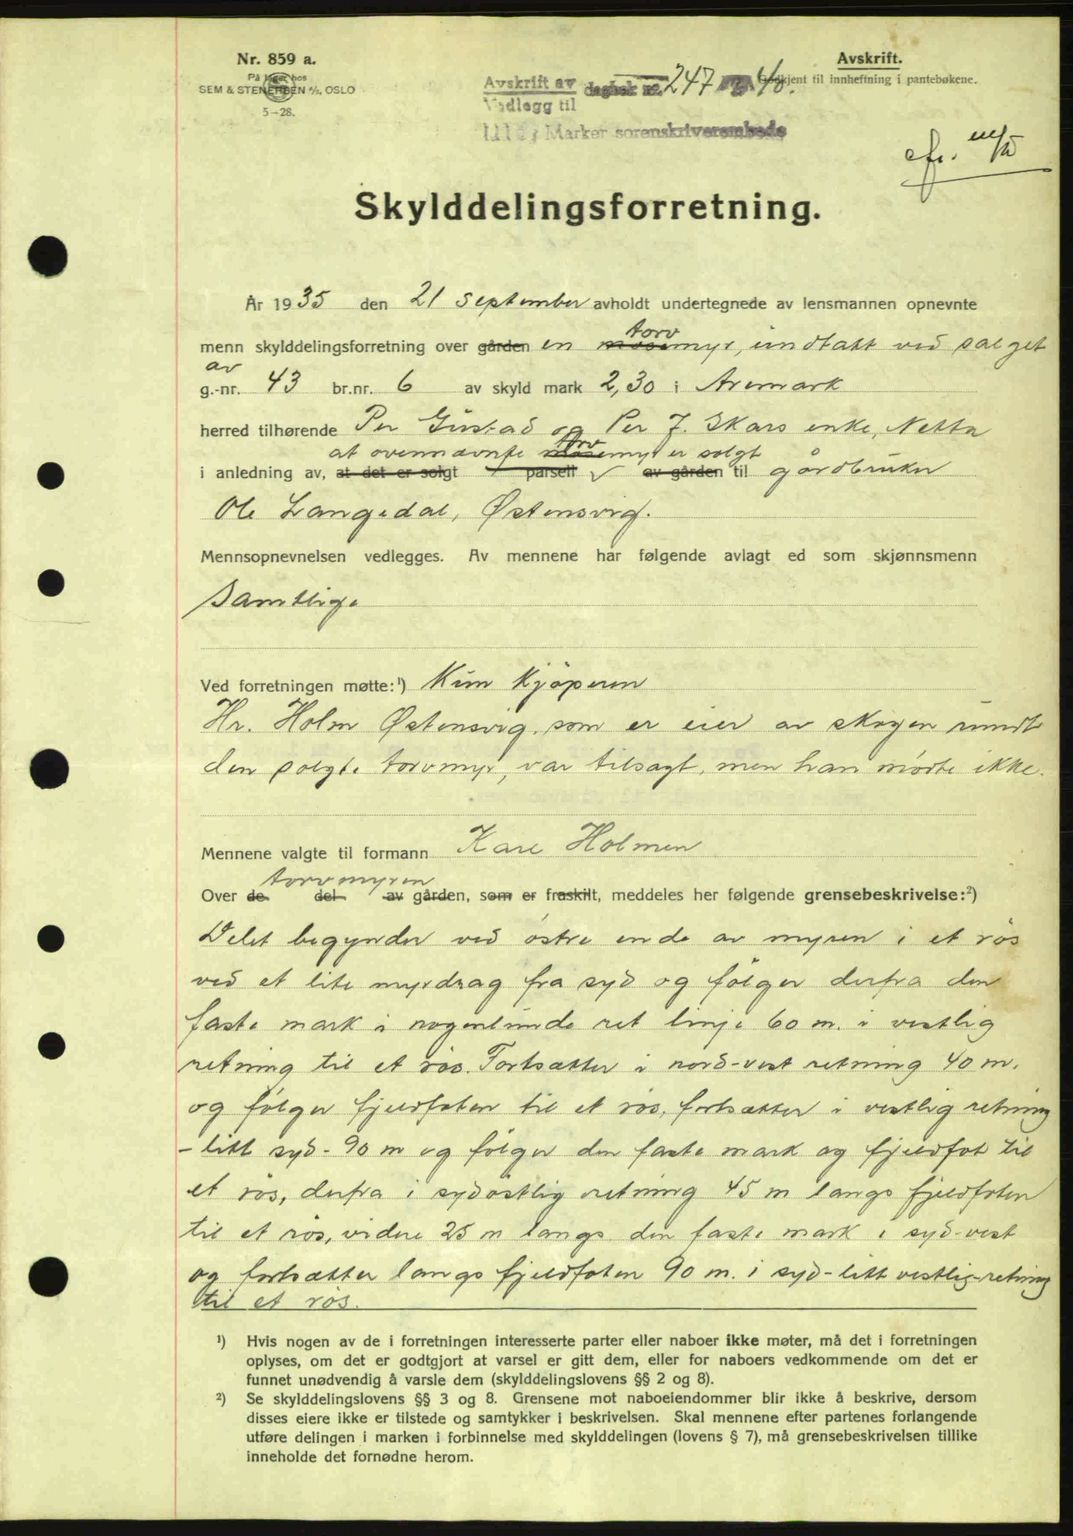 Nr. 859 a.
På lager hos
SEM & STENERSEN A/S, OSLO
5—28.
Avskrift.
Godkjent til innheftning i pantebøkene.
Avskrift av dagbok nr. 247 40.
Vedlegg til
Marker sorenskriverembede
Skylddelingsforretning.
År 1935 den 21 september avholdt undertegnede av lensmannen opnevnte
torv
menn skylddelingsforretning over gården en mosemyr, undtatt ved salget
av
g.-nr. 43 br.nr. 6 av skyld mark 2,30 i Aremark
herred tilhørende Per Gustad og Per J. Skars enke, Netta
at ovennævnte mosemyr torv er solgt
i anledning av, at det er solgt parsell av gården til gårdbruker
Ole Langedal, Østensvig.
Mennsopnevnelsen vedlegges. Av mennene har følgende avlagt ed som skjønnsmenn
Samtlige
Ved forretningen møtte:¹) Kun kjöperen
Hr. Holm Østensvig, som er eier av skogen rundt
den solgte torvmyr, var tilsagt, men han mødte ikke.
Mennene valgte til formann Kåre Holmen
torvmyren
Over de del av gården, som er fraskilt, meddeles her følgende grensebeskrivelse:²)
Delet begynder ved östre ende av myren i et rös
ved et lite myrdrag fra syd og fölger derfra den
faste mark i nogenlunde ret linje 60 m. i vestlig
retning til et rös. Fortsætter i nord-vest retning 40 m.
og fölger fjeldfoten til et rös, fortsætter i vestlig retning
- litt syd - 90 m og fölger den faste mark og fjeldfot til
et rös, derfra i sydöstlig retning 45 m langs fjeldfoten
til et rös, videre 25 m langs den faste mark i syd-vest
og fortsætter langs fjeldfoten 90 m. i syd-litt vestlig-retning
til et rös.
¹) Hvis nogen av de i forretningen interesserte parter eller naboer ikke møter, må det i forretningen
oplyses, om det er godtgjort at varsel er gitt dem, eller for naboers vedkommende om det er
funnet unødvendig å varsle dem (skylddelingslovens §§ 2 og 8).
²) Se skylddelingslovens §§ 3 og 8. Grensene mot naboeiendommer blir ikke å beskrive, dersom
disses eiere ikke er tilstede og samtykker i beskrivelsen. Skal mennene efter partenes forlangende
utføre delingen i marken i forbinnelse med skylddelingen (lovens § 7), må grensebeskrivelsen tillike
inneholde det fornødne herom.